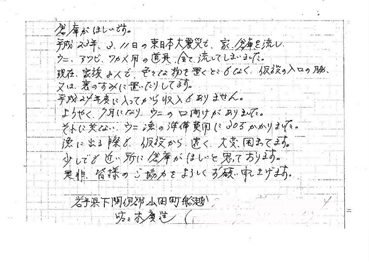 倉庫がほしいです。
平成23年、3.11の東日本大震災で、家、倉庫を流し
ウニ、アワビ、ワカメ用の道具、全て流してしまいました。
現在、家族4人で、色々な物を置くところもなく、仮設の入口の
又は、家のすみに置いたりしてます。
平成24年度に入ってから収入もありません。
ようやく、7月になり、ウニの口開けがありました。
それに伴ない、ウニ漁の準備費用に30万かかりました。
漁に出る際も、仮設から遠く、大変困ってます。
少しでも近い所に倉庫がほしいと思っております。
是非、皆様のご協力をよろしくお願い申し上げます。
岩手県下閉伊郡山田町船越
佐々木